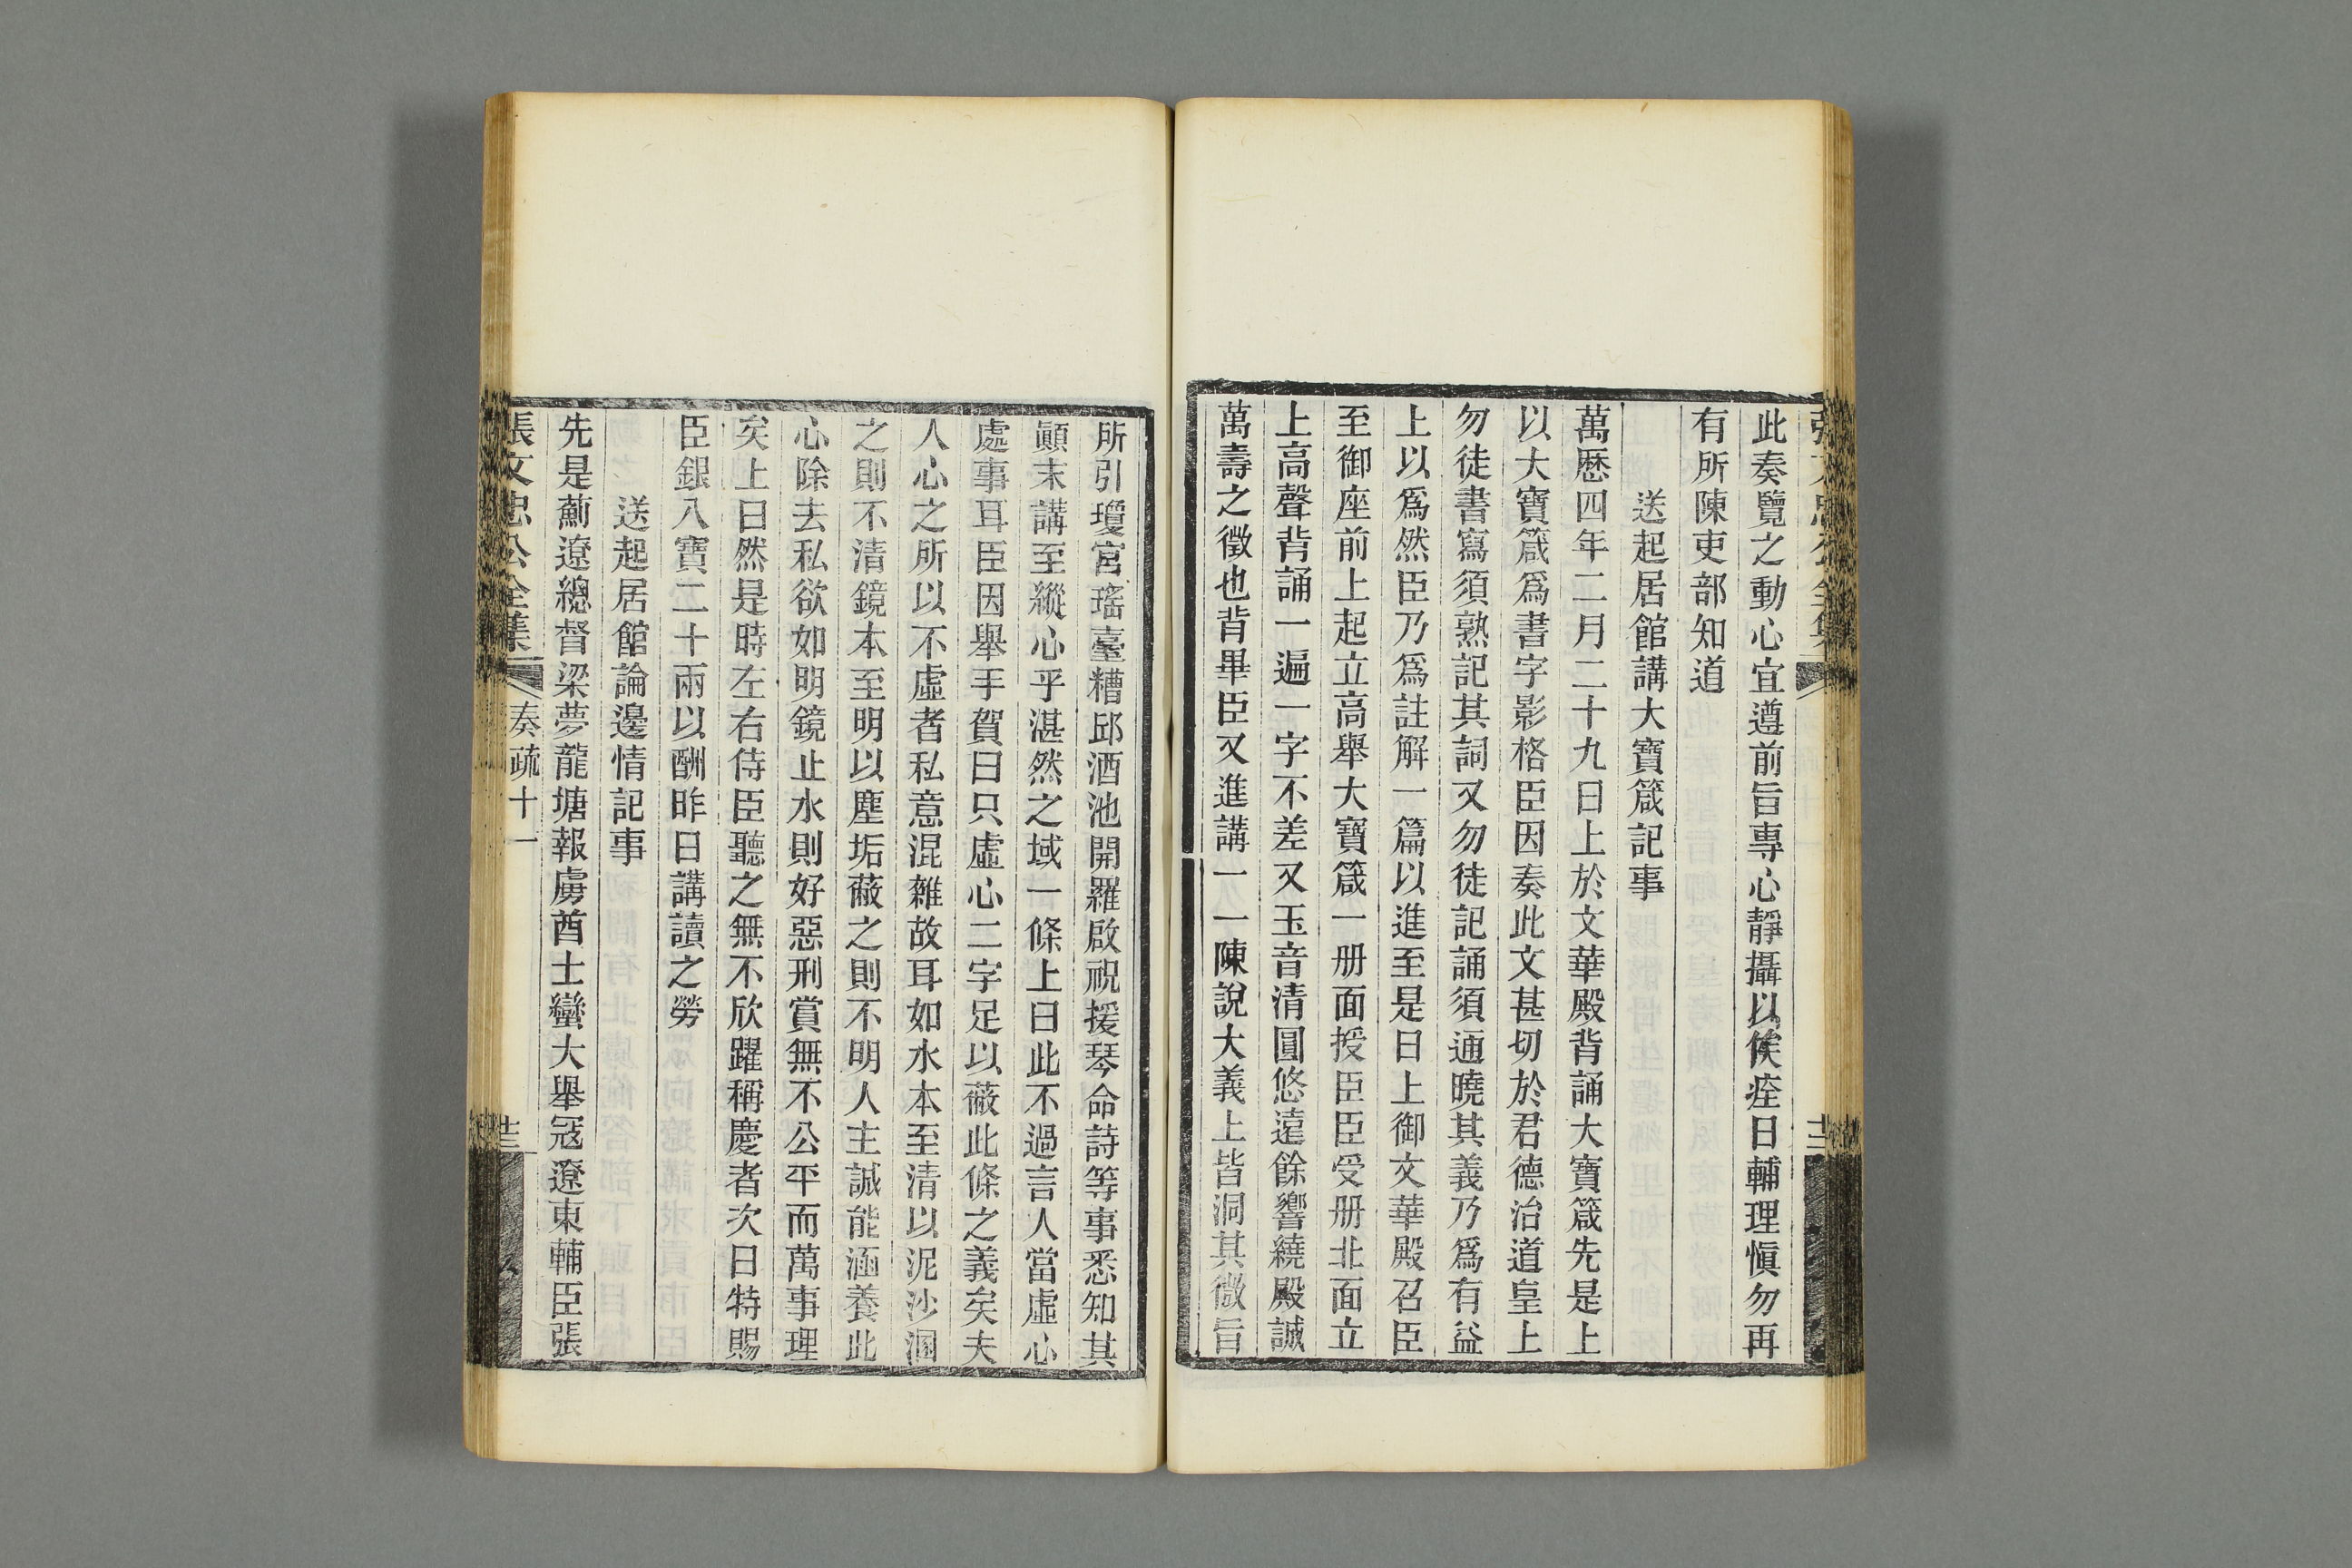 此奏覽之動心宜遵前旨專心靜攝以俟痊日輔理愼勿再
有所陳吏部知道
送起居館講大寶箴記事
萬厯四年二月二十九日上於文華殿背誦大寶箴先是上
以大寶箴爲書字影格臣因奏此文甚切於君德治道皇上
勿徒書寫須熟記其詞又勿徒記誦須通曉其義乃爲有益
上以爲然臣乃爲註解一篇以進至是日上御文華殿召臣
至御座前上起立高舉大寶箴一册面授臣臣受册北面立
上高聲背誦一遍一字不差又玉音清圓悠遠餘響繞殿誠
萬壽之徵也背畢臣又進講一一陳說大義上皆洞其微旨
所引瓊宮瑤臺糟邱酒池開羅啟祝援琴命詩等事悉知其
顚末講至縱心乎湛然之域一條上曰此不過言人當虛心
處事耳臣因舉手賀曰只虛心二字足以蔽此條之義矣夫
人心之所以不虛者私意混雜故耳如水本至清以泥沙溷
之則不清鏡本至明以塵垢蔽之則不明人主誠能涵養此
心除去私欲如明鏡止水則好惡刑賞無不公平而萬事理
矣上曰然是時左右侍臣聽之無不欣躍稱慶者次日特賜
臣銀八寶二十兩以酬昨日講讀之勞
送起居館論邊情記事
先是薊遼總督梁夢龍塘報虜酋土蠻大舉冦遼東輔臣張
張文忠公全集
奏疏十一